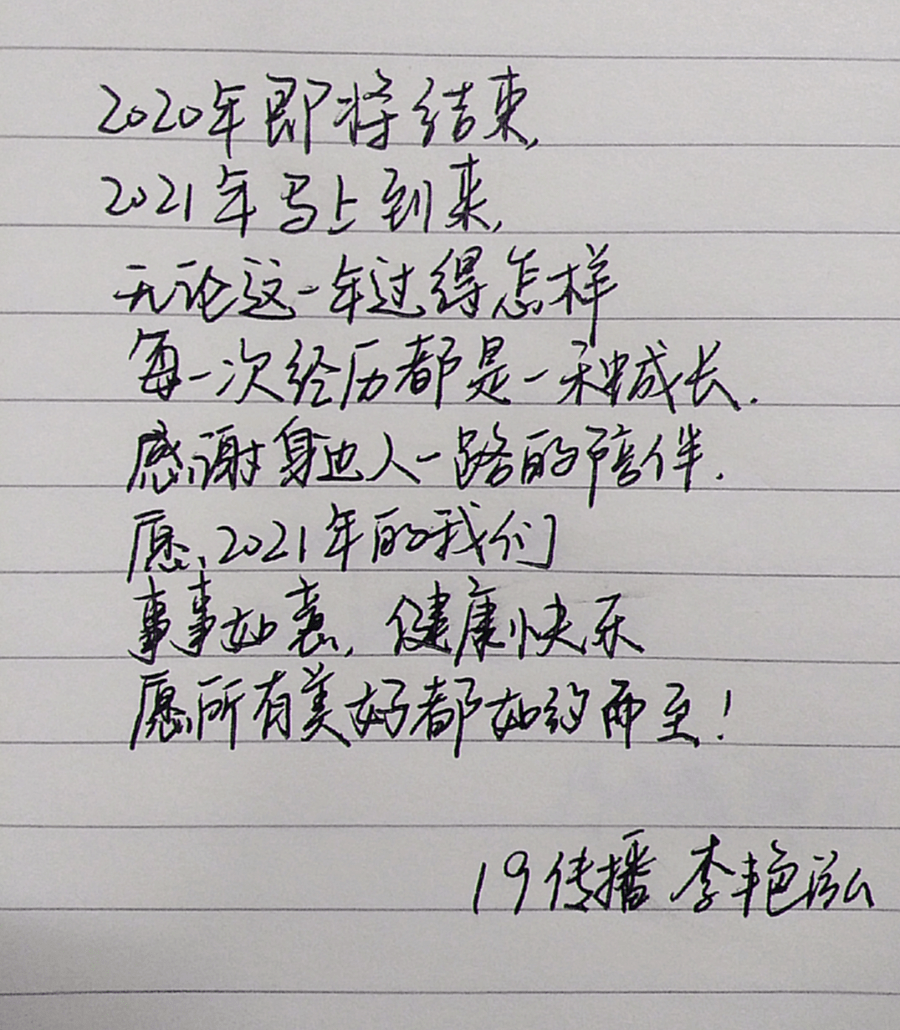 2020年即将结束,
2021年马上到来,
无论这一年过得怎样
每一次经历都是一种成长.
感谢身边人一路的陪伴.
愿,2021年的我们
事事如意,健康快乐
愿所有美好都如约而至!
19传播 李艳泓